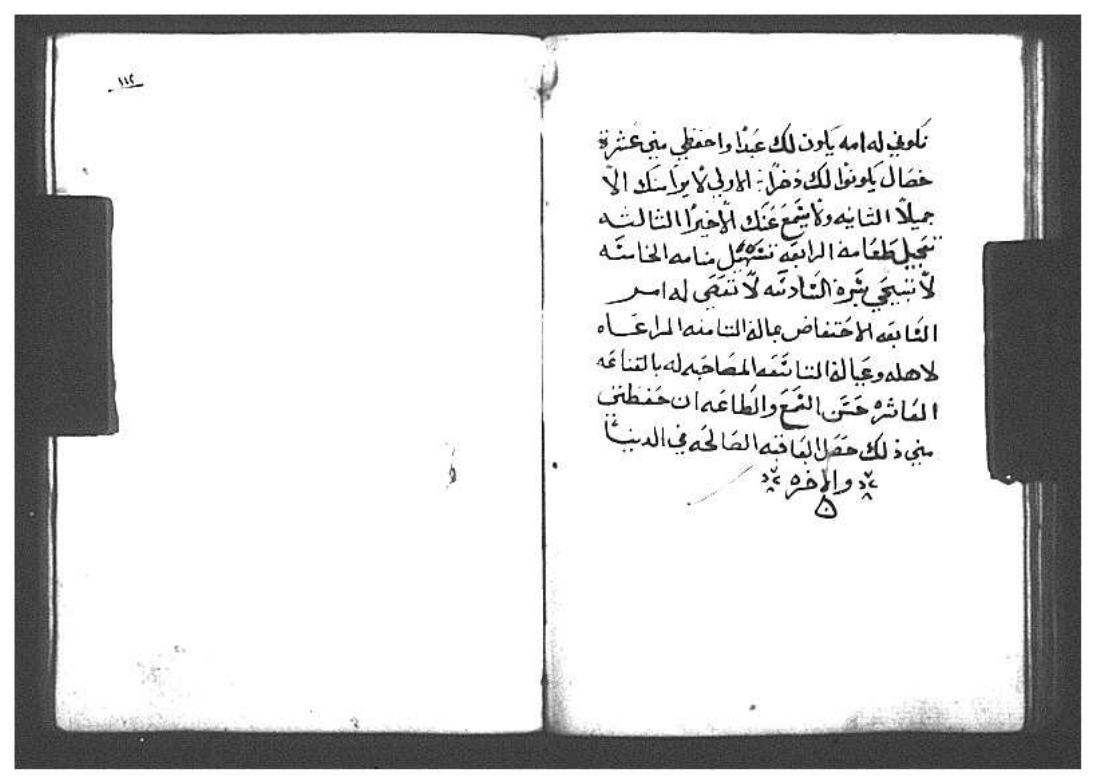 تكوني له امه يكون لك عبدا واحفظي مني عشرة
خصال يكونوا لك ذخرا: الاولي لا يرا منك الا
جميلا الثانيه ولا يسمع عنك الا خيرا الثالثه
تعجيل طعامه الرابعه تسهيل منامه الخامسه
لا تبيحي بسره السادسه لا تعصي له امر
السابعه الاحتفاض بماله الثامنه المراعاه
لاهله وعياله التاسعه المصاحبه له بالقناعه
العاشره حسن السمع والطاعه ان حفظتي
مني ذلك حصل العاقبه الصالحه في الدنيا
والاخره
١١٢